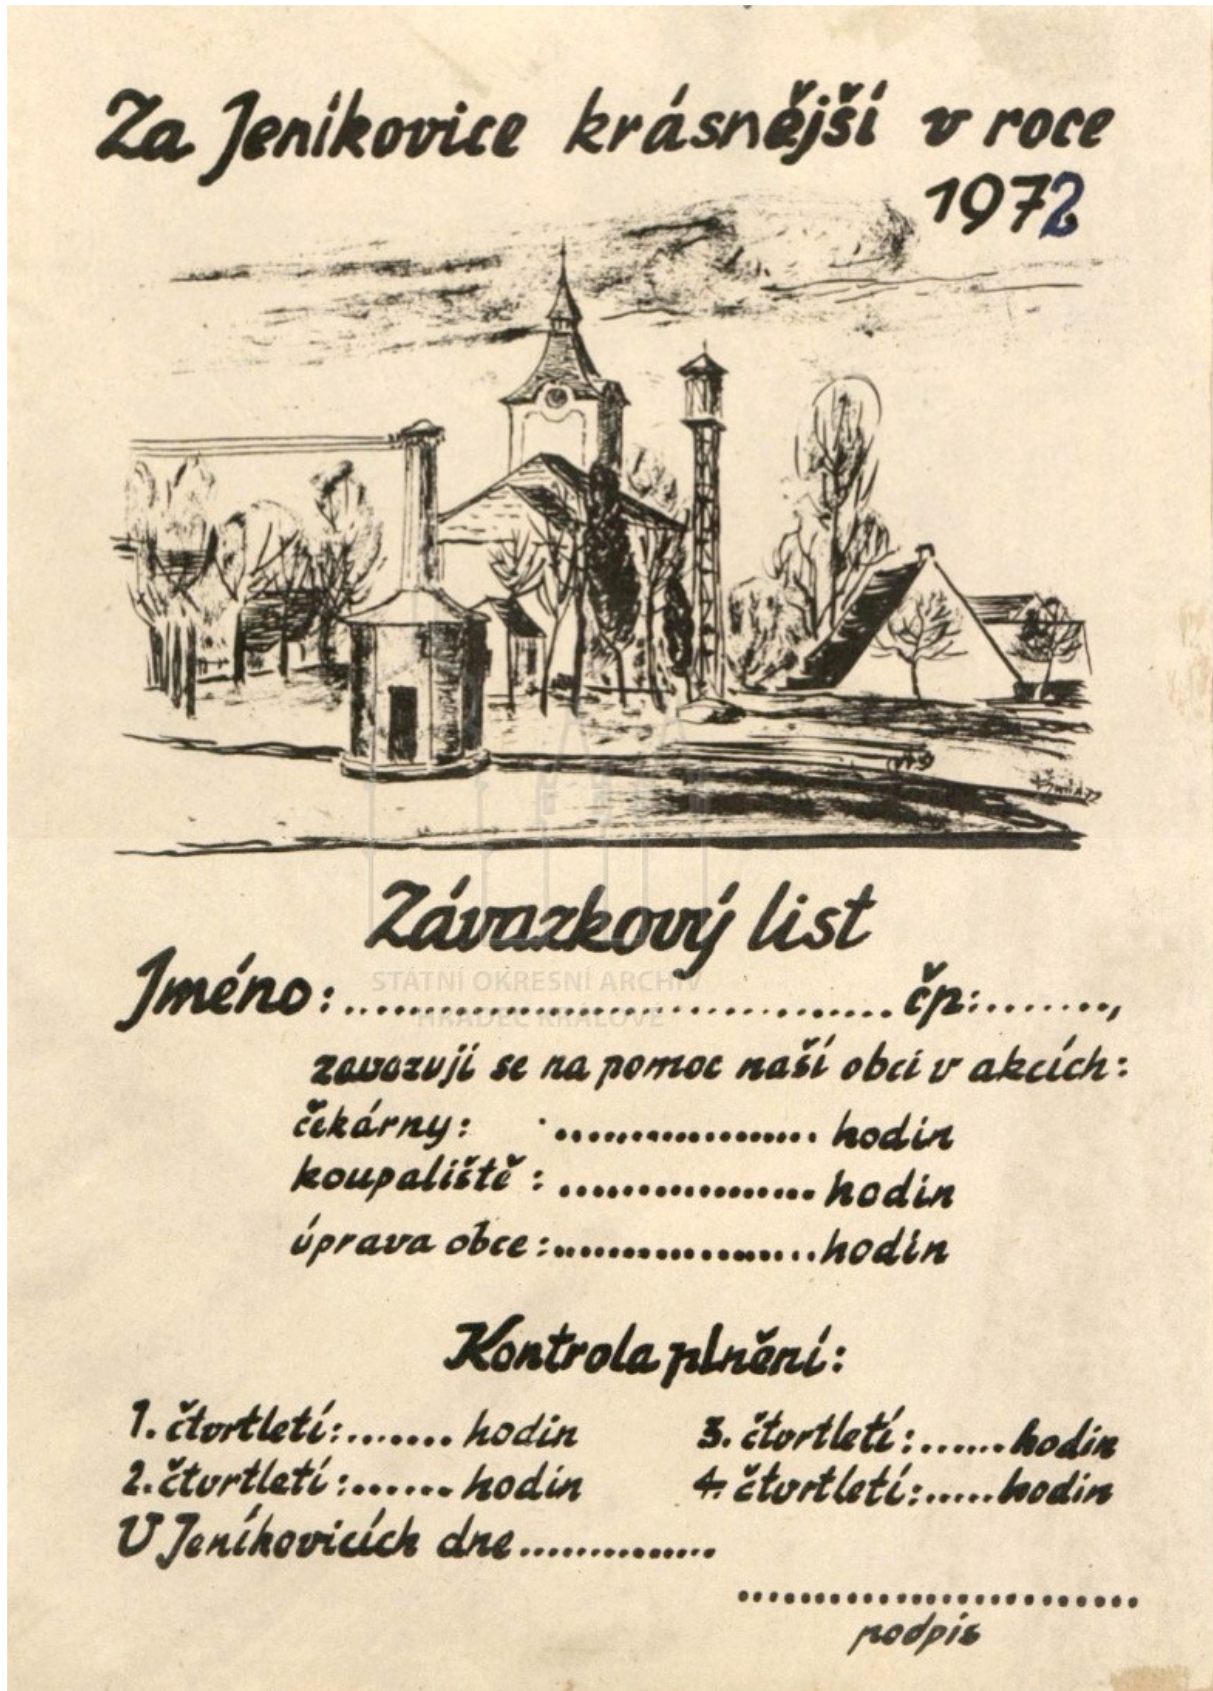 Za Jeníkovice krásnější v roce
1972
Závazkový list
Jméno:.......................................čp:........,
STÁTNÍ OKRESNÍ ARCHIV
HRADEC KRÁLOVÉ
zavazuji se na pomoc naší obci v akcích:
čekárny: ................... hodin
koupaliště: .................. hodin
úprava obce:...................hodin
Kontrola plnění:
1. čtvrtletí:....... hodin
3. čtvrtletí:...... hodin
2. čtvrtletí:....... hodin
4. čtvrtletí:..... hodin
V Jeníkovicích dne...............
..........................
podpis